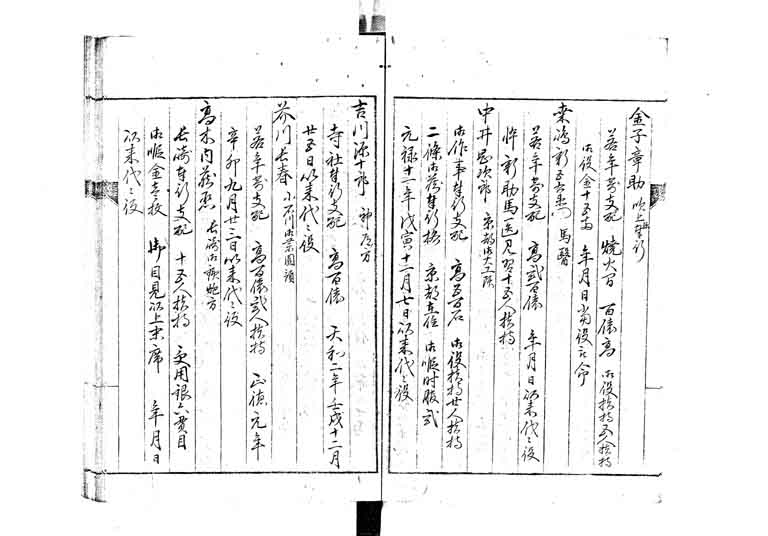 金子章助 吹上奉行
若年寄支配 焼火間 百俵高 御役扶持五人扶持
御役金十五両 年月日 当役被命
桑嶋新五右衛門 馬醫
若年寄支配 高弐百俵 年月日以来代々役
忰新助馬医見習十五人扶持
中井 次郎 京都大工頭
御作事奉行支配 高五百石 御役扶持廿人扶持
二條御蔵奉行格 京都在住 御暇時服弐
元禄十一年戊寅十二月七日以来代々役
吉川源十郎 神道方
寺社奉行支配 高百俵 天和二年壬戌十二月
廿五日以来代々役
芥川長春 小石川御薬園預
若年寄支配 高百俵弐人扶持 正徳元年
辛卯九月廿三日以来代々役
高木内蔵丞 長崎御鉄炮方
長崎奉行支配 十五人扶持 受用銀六貫目
御暇金壱枚 御目見以上末席 年月日
以来代々役